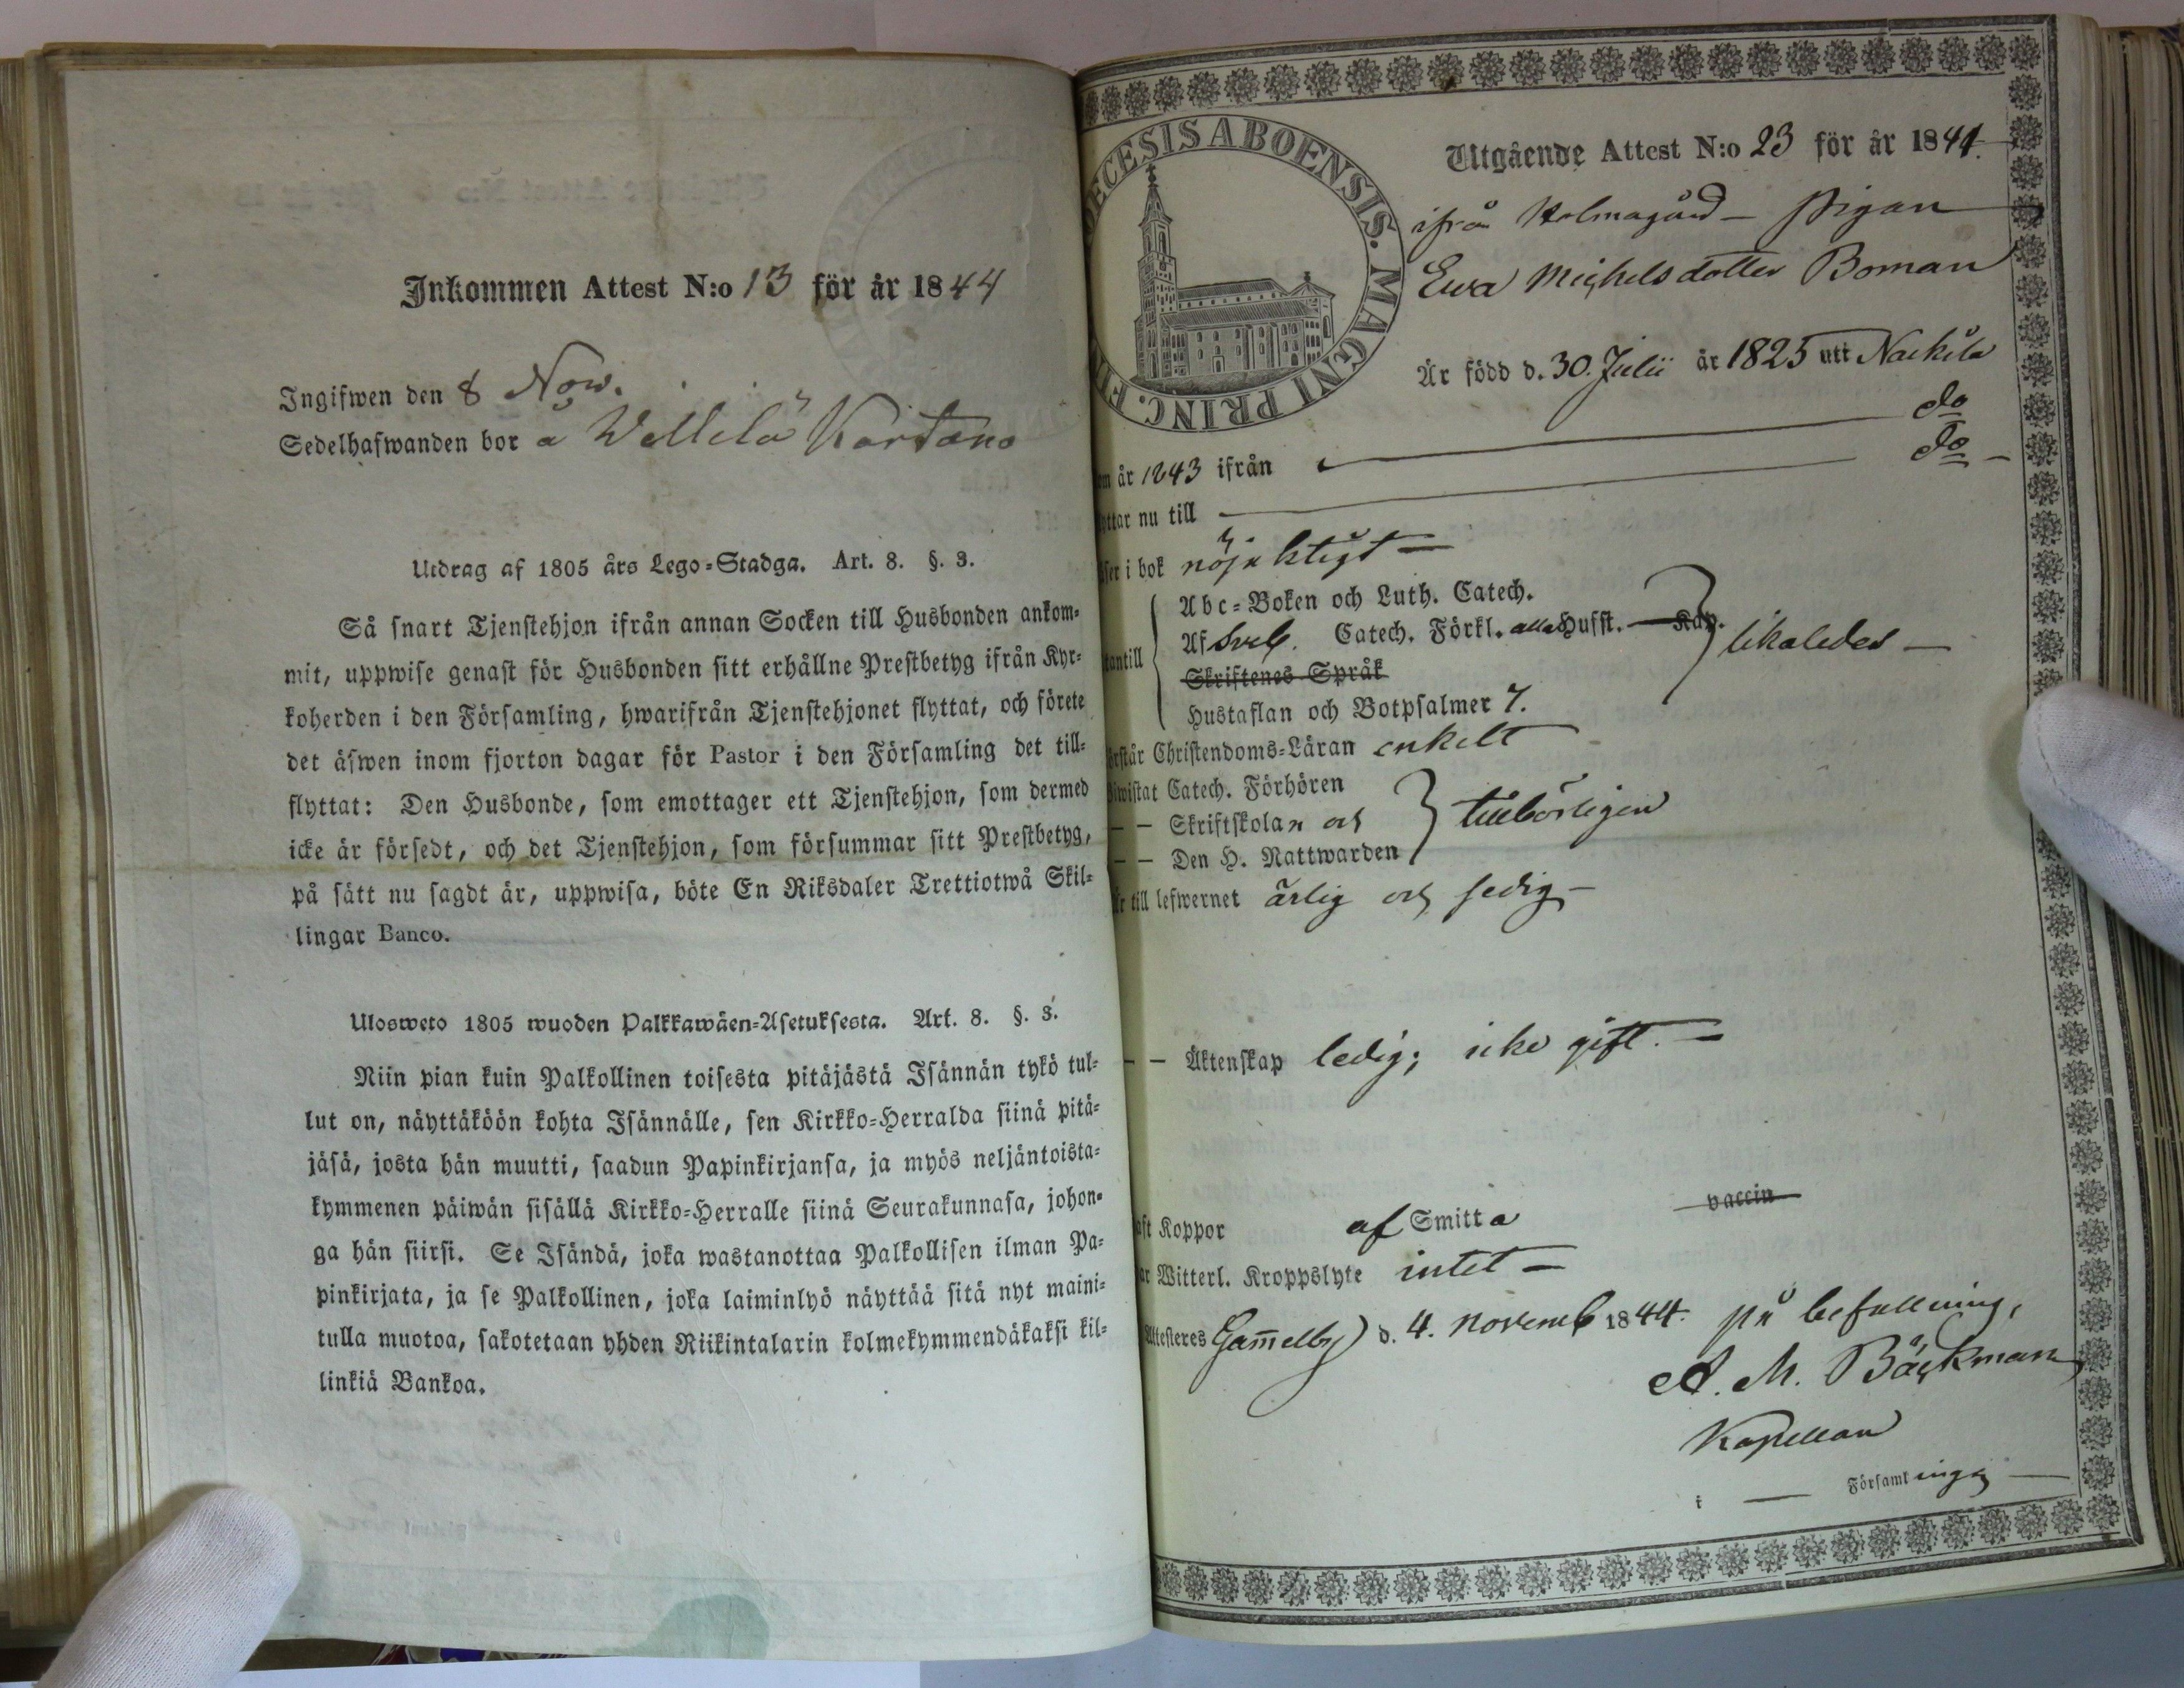 Inkommen Attest N:o 13 för år 1844
Ingifwen den 8 Now.
Sedelhafwanden bor å Willilä Kartano
Utdrag af 1805 års Lego-Stadga. Art. 8. §. 3.
Så snart Tjenstehjon ifrån annan Socken till Husbonden ankom-
mit, uppwise genast för Husbonden sitt erhållne Prestbetyg ifrån Kyr-
koherden i den Församling, hwarifrån Tjenstehjonet flyttat, och förete
det äfwen inom fjorton dagar för Pastor i den Församling det till-
flyttat: Den Husbonde, som emottager ett Tjenstehjon, som dermed
icke är försedt, och det Tjenstehjon, som försummar sitt Prestbetyg,
på sätt nu sagdt är, uppwisa, böte En Riksdaler Trettiotwå Skil-
lingar Banco.
Ulosweto 1805 wuoden Palkkawäen-Asetuksesta. Art. 8. §. 3.
Niin pian kuin Palkollinen toisesta pitäjästä Isännän tykö tul-
lut on, näyttäköön kohta Isännälle, sen Kirkko-Herralda siinä pitä-
jäsä, josta hän muutti, saadun Papinkirjansa, ja myös neljäntoista-
kymmenen päiwän sisällä Kirkko-Herralle siinä Seurakunnasa, johon-
ga hän siirsi. Se Isändä, joka wastanottaa Palkollisen ilman Pa-
pinkirjata, ja se Palkollinen, joka laiminlyö näyttää sitä nyt maini-
tulla muotoa, sakotetaan yhden Riikintalarin kolmekymmendäkaksi kil-
linkiä Bankoa.
ECESIS ABOENSIS. MAGNI PRINC. FI
Utgående Attest N:o 23 för år 1844.
ifrån Holmagård - Pigan
Ewa Michelsdotter Boman
Är född d. 30. Julii år 1825 uti Nackila
om år 1843 ifrån do
yttar nu till do
äser i bok nöjaktigt
Abc-Boken och Luth. Catech.
Af Sveb. Catech. Förkl. alla Husst. Kap.
utantill likaledes
Skriftenes Språk
Hustaflan och Botpsalmer 7.
örstår Christendoms-Läran enkelt
Biwistat Catech. Förhören
- - Skriftskolan och tillbörligen
- - Den H. Nattwarden
Är till lefwernet ärlig och sedig
- - Äktenskap ledig; icke gift.
aft Koppor af Smitta vaccin
ar Witterl. Kroppslyte intet
Attesteres Gam̄elby d. 4. Novemb 1844. på befallning,
A. M. Bäckman
Kapellan
i Församlingen